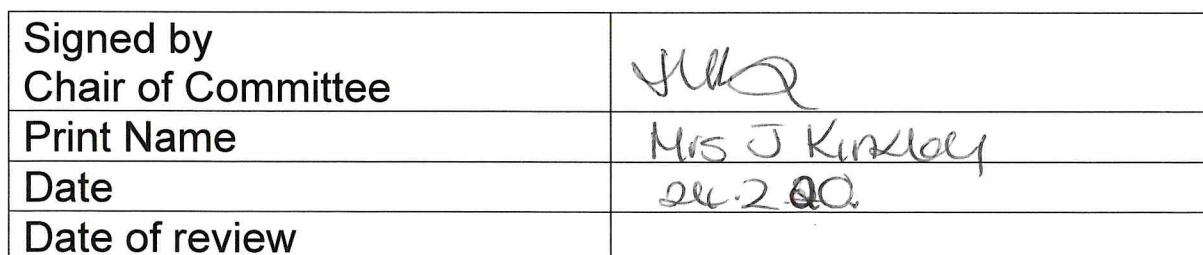 Signed by
Chair of Committee
Print Name Mrs J Kirkley
Date 24.2.20.
Date of review